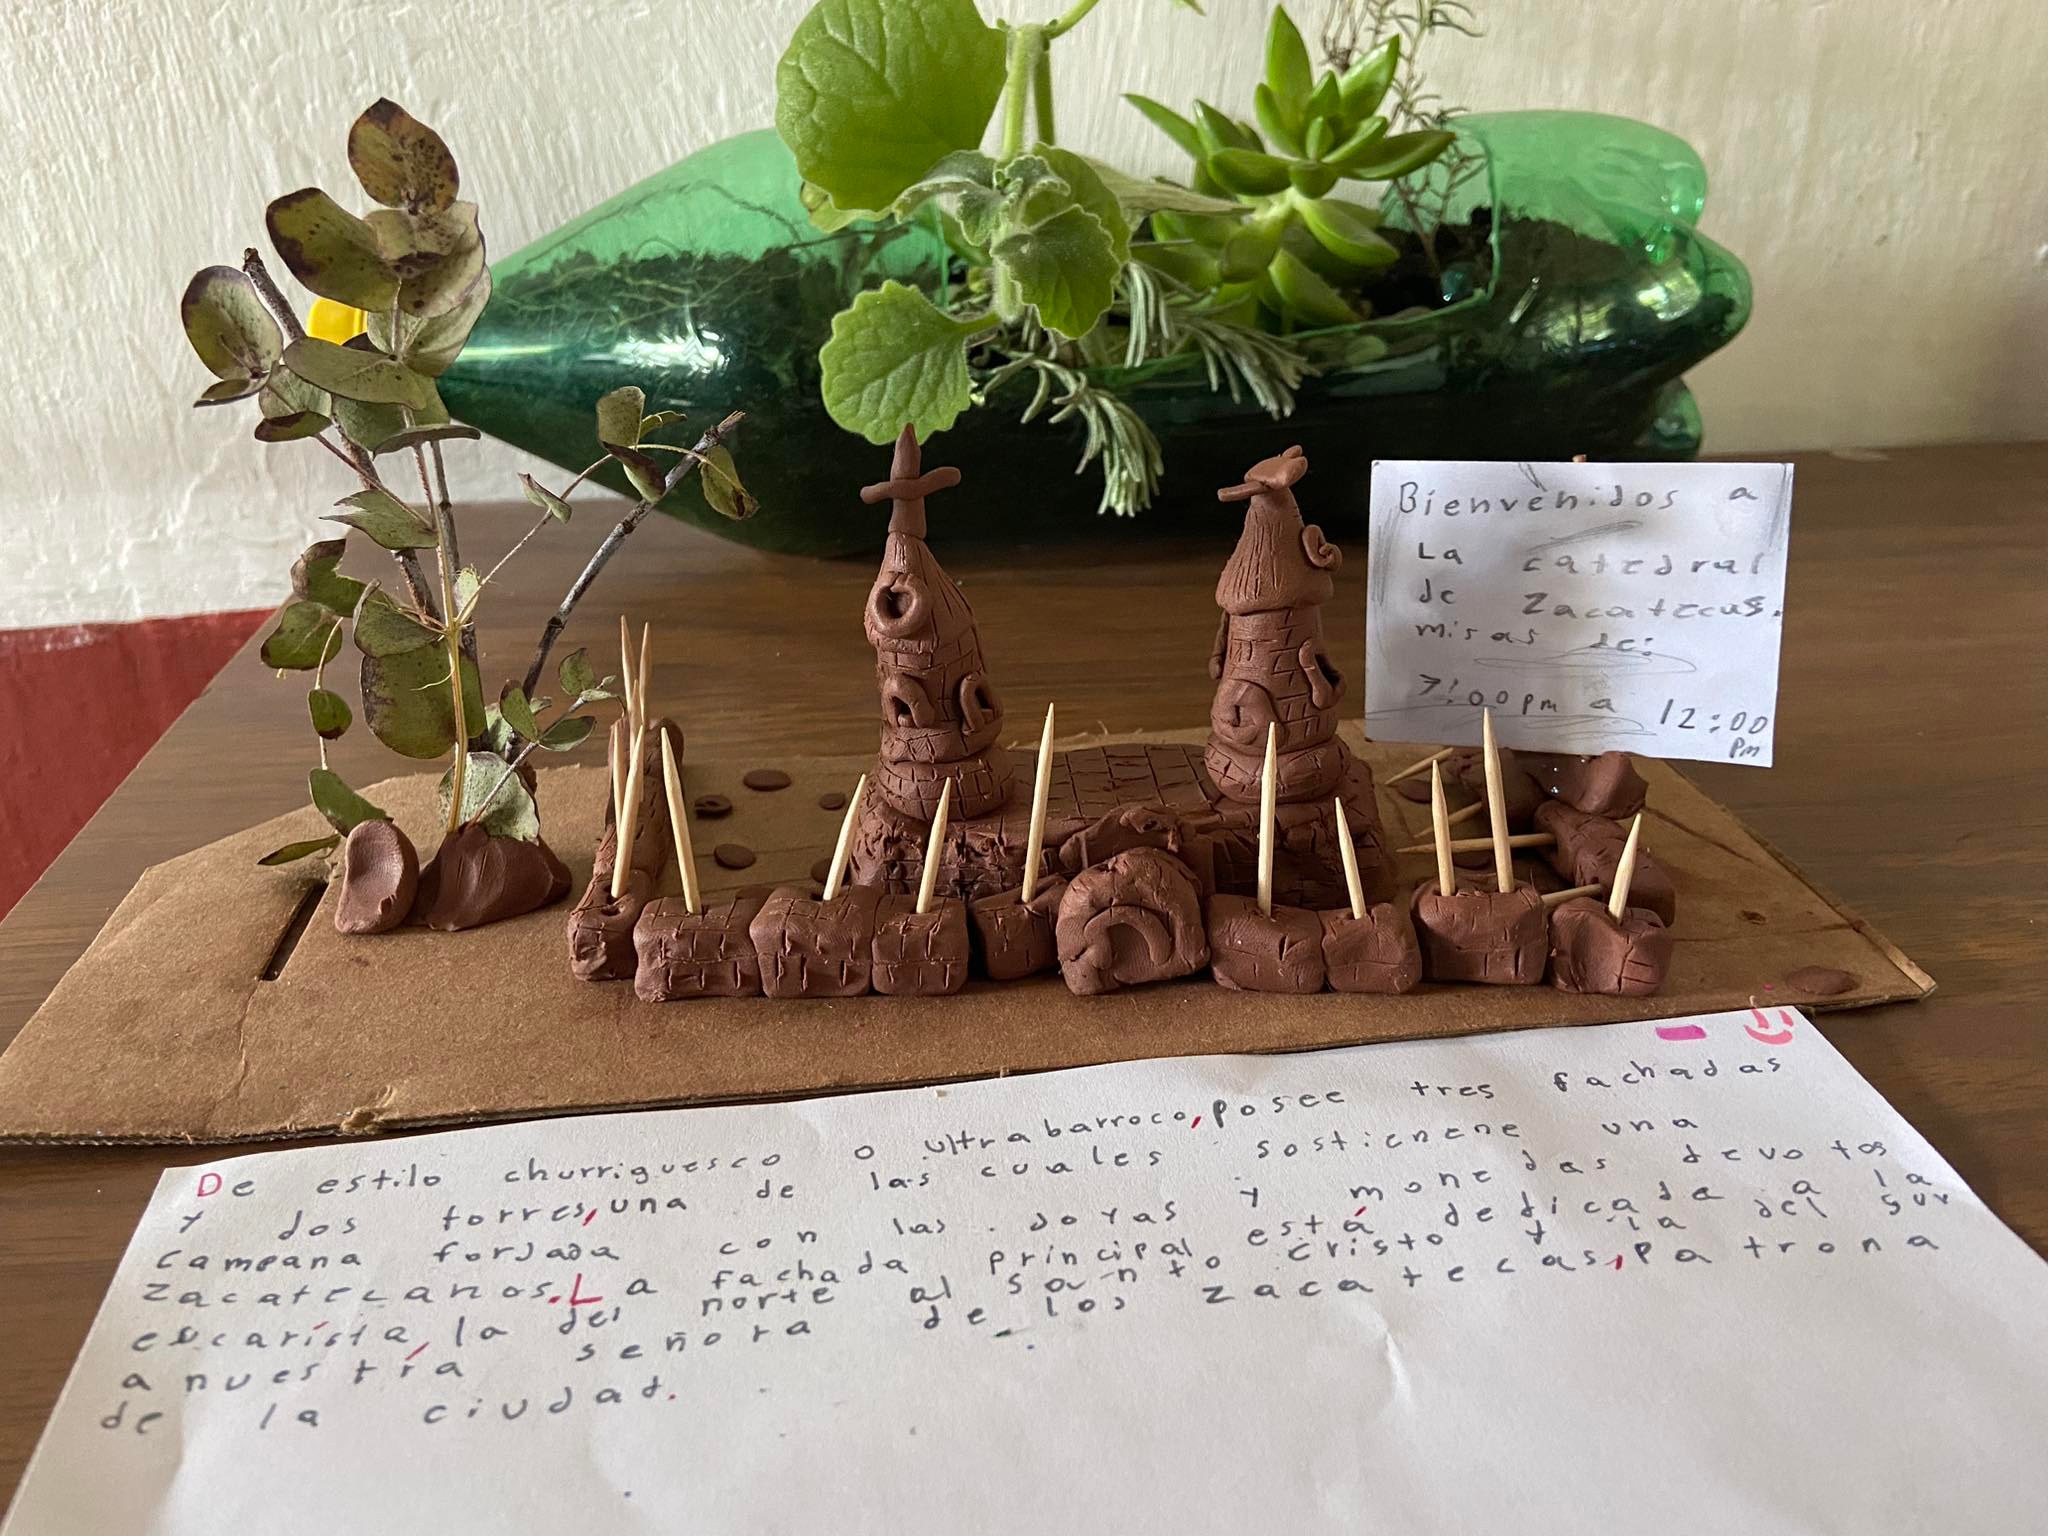 Bienvenidos a
La catedral
de Zacatecas.
misas de:
7:00pm a 12:00
pm
De estilo churriguesco o ultrabarroco, posee tres fachadas
y dos torres, una de las cuales sostienene una
campana forjada con las joyas y monedas devotos
zacatecanos. La fachada principal está dedicada a la
eucarísta, la del norte al santo cristo y la del sur
a nuestra señora de los zacatecas, patrona
de la ciudad.